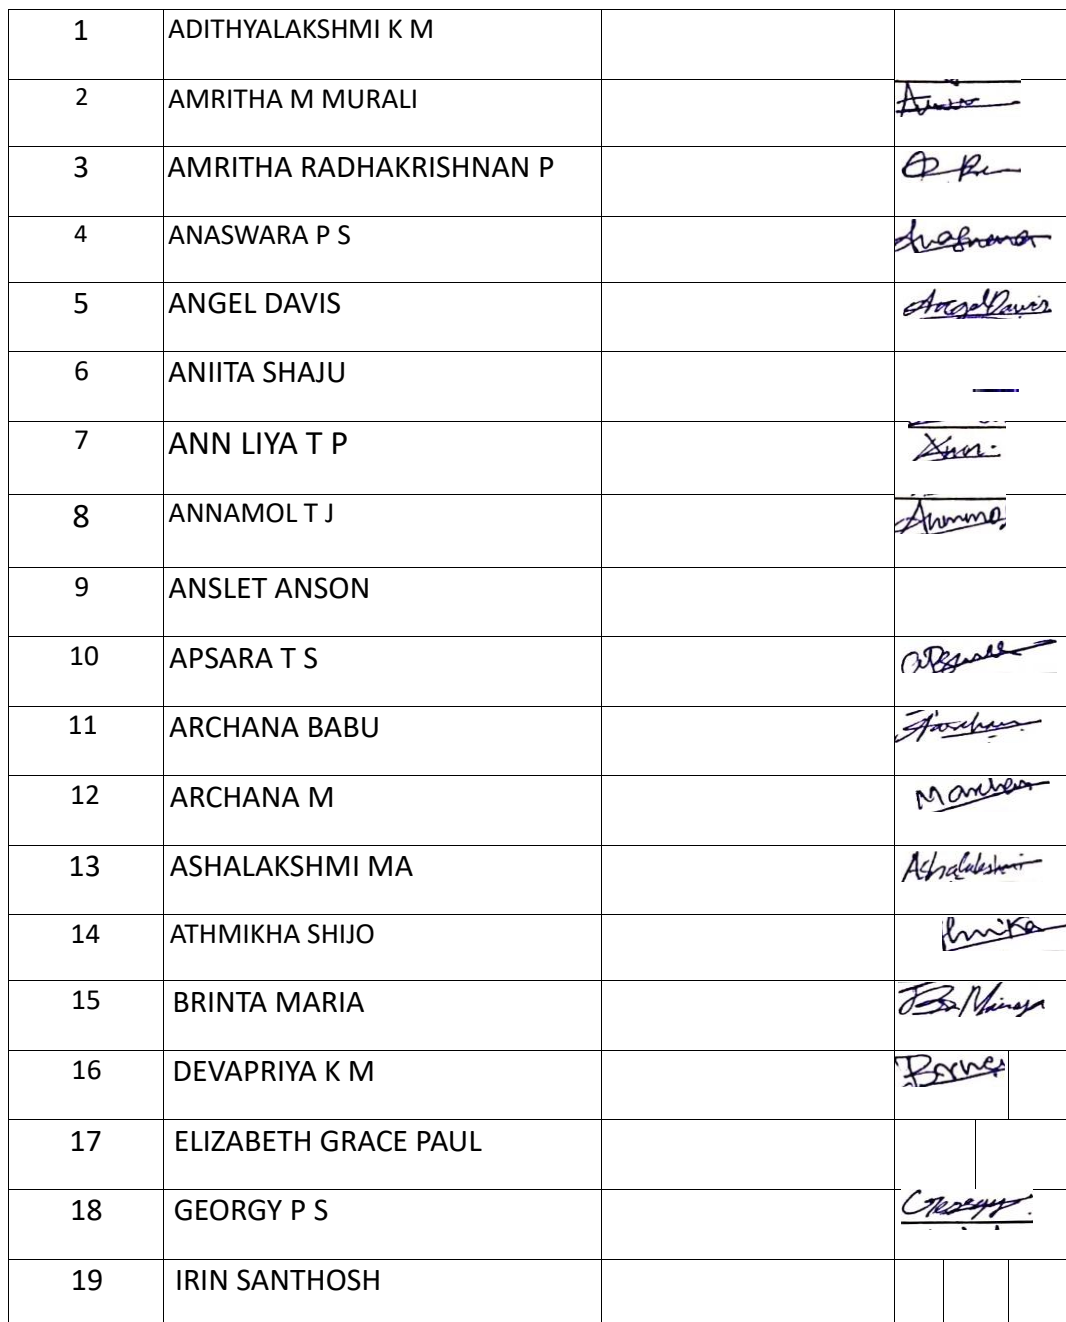 1 ADITHYALAKSHMI K M
2 AMRITHA M MURALI
3 AMRITHA RADHAKRISHNAN P
4 ANASWARA P S
5 ANGEL DAVIS Angel Davis
6 ANIITA SHAJU
7 ANN LIYA T P
8 ANNAMOL T J
9 ANSLET ANSON
10 APSARA T S
11 ARCHANA BABU
12 ARCHANA M
13 ASHALAKSHMI MA Ashalakshmi
14 ATHMIKHA SHIJO
15 BRINTA MARIA
16 DEVAPRIYA K M
17 ELIZABETH GRACE PAUL
18 GEORGY P S Georgy
19 IRIN SANTHOSH